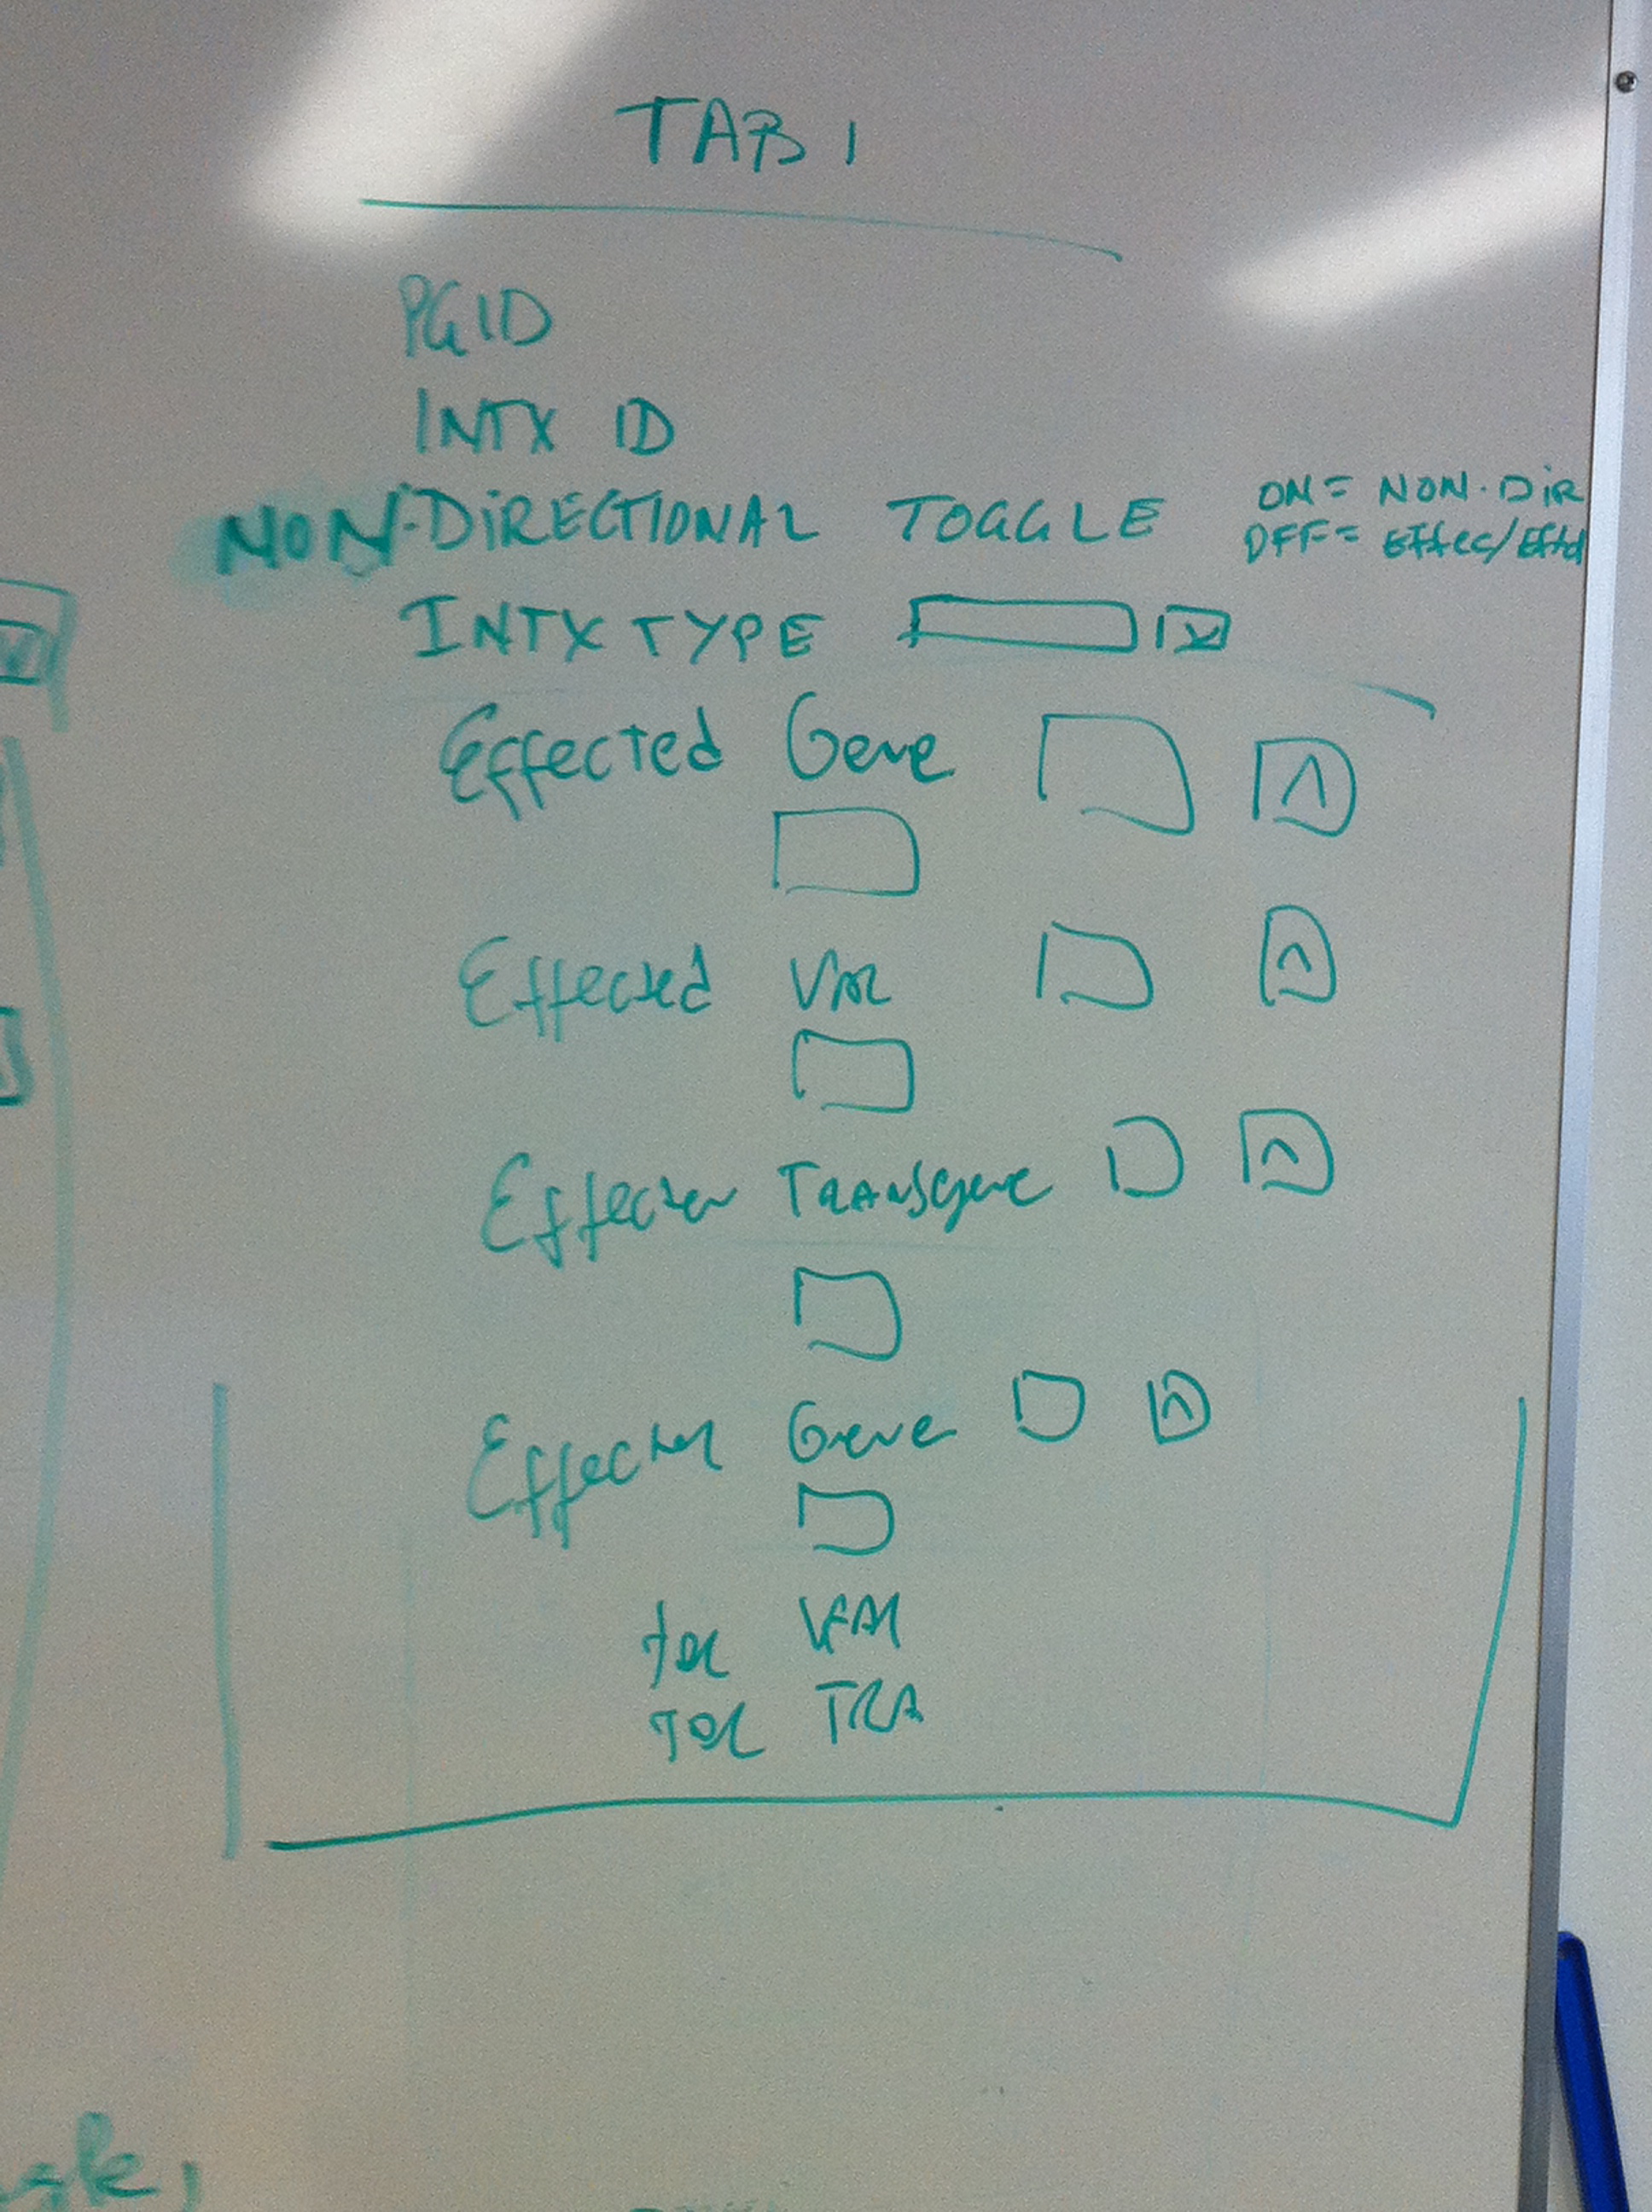 TAB 1
PGID
INTX ID
NON-DIRECTIONAL TOGGLE
ON = NON-DIR
OFF = Effec/Effd
INTX TYPE
Effected Gene
Effected VAR
Effector TRANSgene
Effector Gene
VAR
TRA